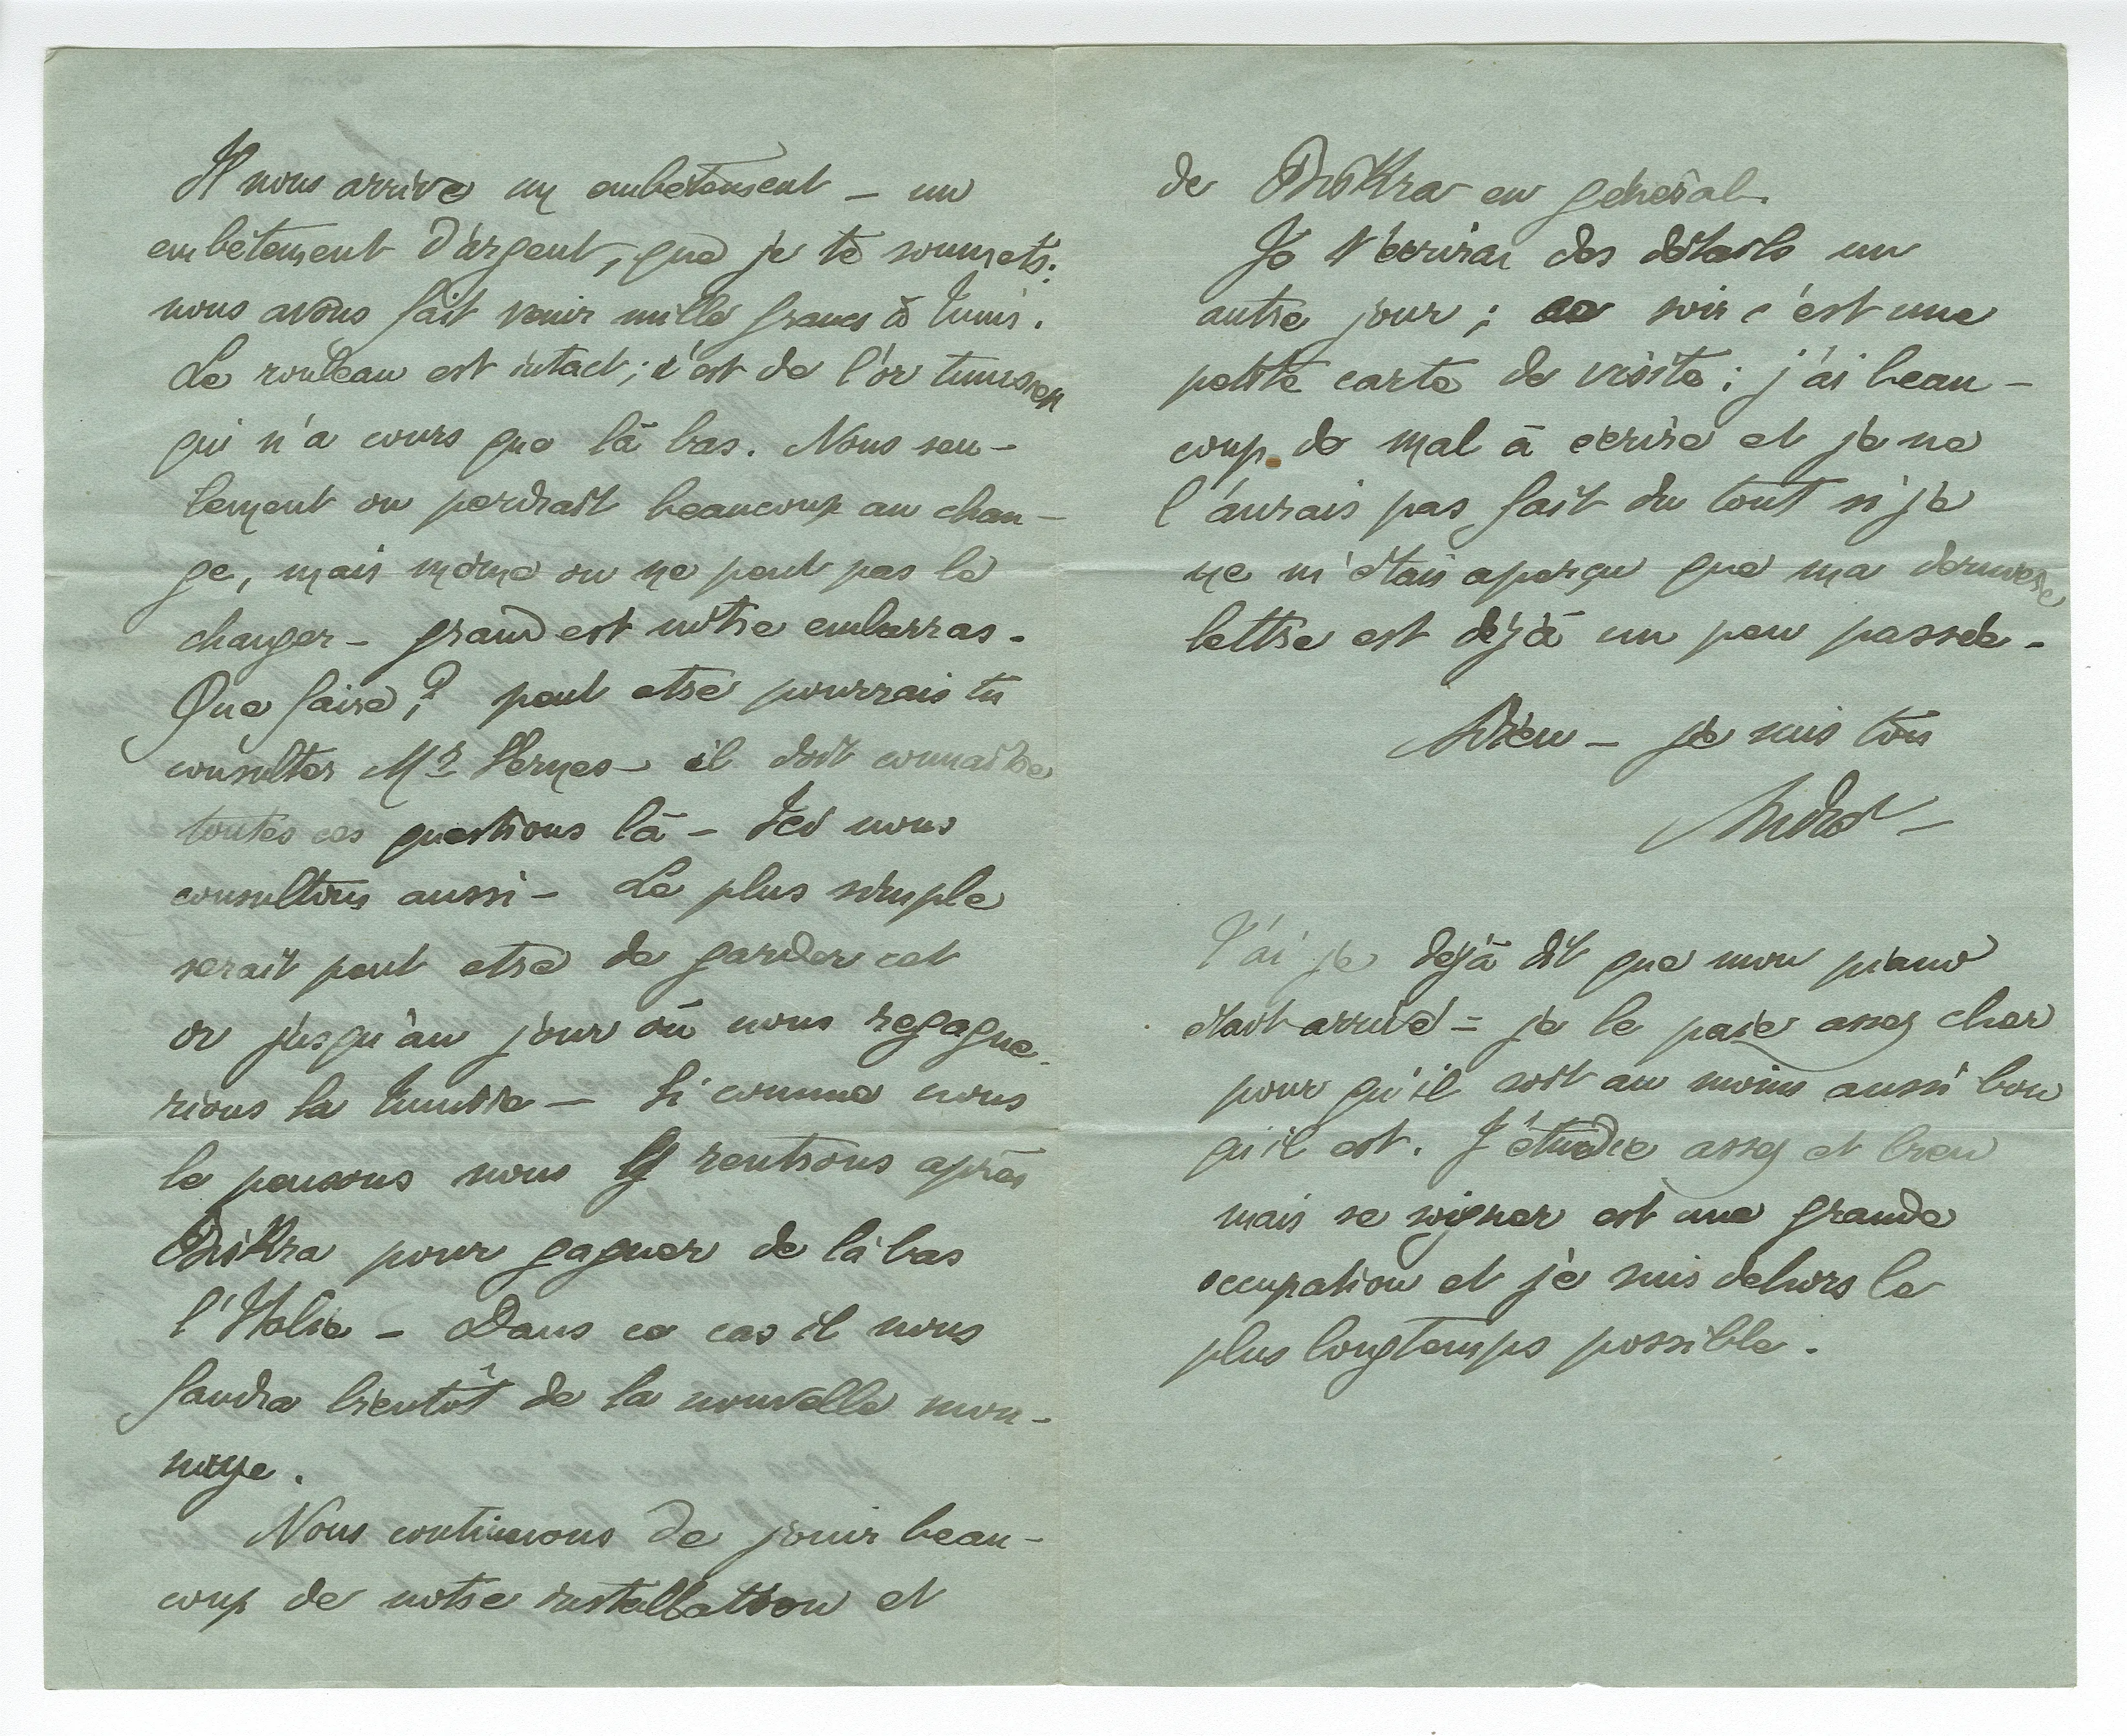 Il nous arrive un embêtement – un
embêtement d'argent, que je te soumets.
nous avons fait venir mille francs à Tunis.
Le rouleau est intact ; c'est de l'or tunisien
qui n'a cours que là bas. Nous seu-
lement on perdrait beaucoup au chan-
ge, mais même on ne peut pas le
changer – grand est nôtre embarras.
Que faire ;? peut etre pourrais tu
consulter Mr Vernes – il doit connaitre
toutes ces questions là – Ici nous
consultons aussi – Le plus simple
serait peut etre de garder cet
or jusqu'au jour où nous regagne-
rions la Tunisie – Si comme nous
le pensons nous y rentrons après
Biskra pour gagner de là bas
l'Italie – Dans ce cas il nous
faudra bientôt de la nouvelle mon-
naye.
Nous continuons de jouir beau-
coup de notre installation et
de Biskra en général.
Je t'écrirai des détails un
autre jour ; ce soir c'est une
petite carte de visite ; j'ai beau-
coup de mal à écrire et je ne
l'aurais pas fait du tout si je
ne m'étais aperçu que ma dernière
lettre est déjà un peu passée –
Adieu – je suis ton
André –
T'ai je déjà dit que mon piano
était arrivé = je le paie assez cher
pour qu'il soit au moins aussi bon
qu'il est. J'étudie assez et bien
mais se soigner est une grande
occupation et je suis dehors le
plus longtemps possible.